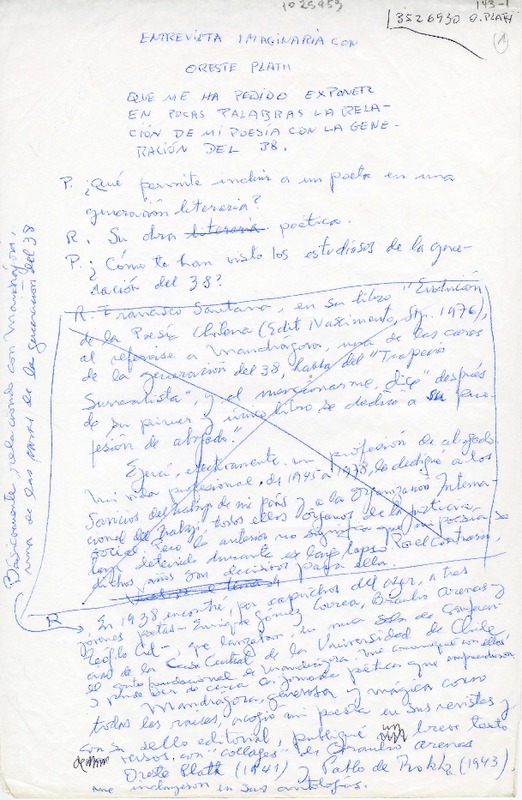 1025453
193-1
3526930 O. PLATH
1
ENTREVISTA IMAGINARIA CON
ORESTE PLATH
QUE ME HA PEDIDO EXPONER
EN POCAS PALABRAS LA RELA-
CIÓN DE MI POESÍA CON LA GENE-
RACIÓN DEL 38.
P. ¿Qué permite incluir a un poeta en una
generación literaria?
R. Su obra literaria poética.
P. ¿Cómo te han visto los estudiosos de la gene-
ración del 38?
R. Francisco Santana, en su libro "Evolución
de la Poesía Chilena (Edit. Nascimento, Stgo. 1976),
al referirse a Mandrágora, una de las caras
de la generación del 38, habla del "Trapecio
Surrealista", y al mencionarme, dice "después
de su primer y único libro se dedica a su pro-
fesión de abogado."
Ejercí, efectivamente mi profesión de abogado.
Mi vida profesional, de 1945 a 1978, la dediqué a los
Servicios del trabajo de mi país y a la Organización Interna-
cional del Trabajo, todos ellos órganos de la justicia
social. Pero lo anterior no significa que mi poesía se
haya detenido durante ese largo lapso. Por el contrario,
dichos años son decisivos para ella.
Básicamente, relacionado con Mandrágora,
una de las caras de la generación del 38
R
En 1938 encontré, por caprichos del azar, a tres
jóvenes poetas - Enrique Gómez Correa, Braulio Arenas y
Teófilo Cid -, que lanzaron, en una Sala de Conferen-
cias de la Casa Central de la Universidad de Chile
el grito fundacional de Mandrágora. Me comuniqué con ellos,
y pude ver de cerca la jornada poética que emprendieron.
Mandrágora, generosa y mágica como
todas las raíces, acogió mi poesía en sus revistas y
con su sello editorial, publiqué un breve texto
de mis versos, con "collages" de Braulio Arenas
Oreste Plath (1941) y Pablo de Rokha (1943)
me incluyeron en sus antologías.